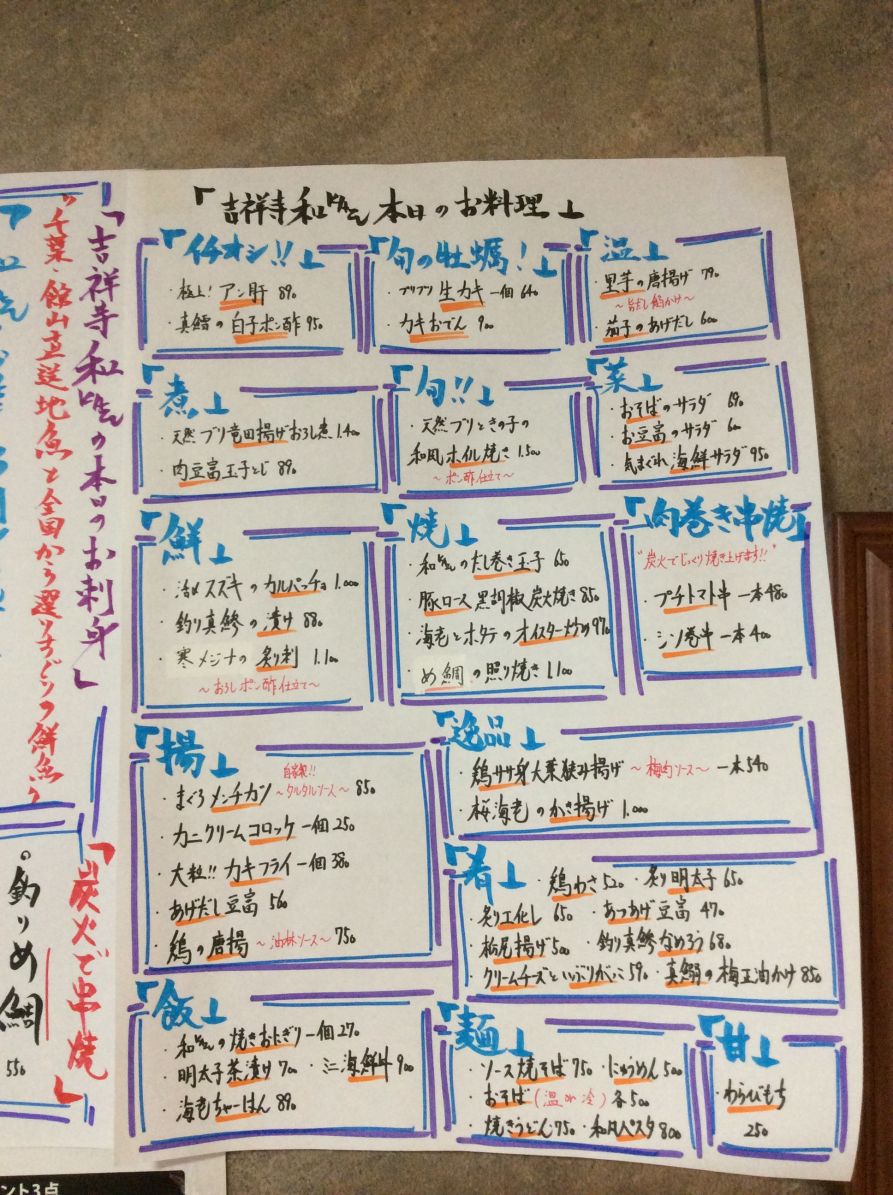 「吉祥寺 和 本日のお料理」
「イチオシ!!」
・極上!アン肝 890
・真鱈の白子ポン酢 950
「旬の牡蠣!」
・プリプリ 生カキ 一個 640
・カキおでん 900
「温」
・里芋の唐揚げ 790
〜旨だし餡かけ〜
・茄子のあげだし 600
「煮」
・天然ブリ竜田揚げおろし煮 1.400
・肉豆富玉子とじ 890
「旬!!」
・天然ブリときの子の
和風ホイル焼き 1.500
〜ポン酢仕立て〜
「菜」
・おそばのサラダ 690
・お豆富のサラダ 600
・気まぐれ海鮮サラダ 950
「鮮」
・活〆スズキのカルパッチョ 1.000
・釣り真鯵の漬け 880
・寒メジナの炙り刺 1.100
〜おろしポン酢仕立て〜
「焼」
・和 のだし巻き玉子 650
・豚ロース黒胡椒炭火焼き 850
・海老とホタテのオイスター炒め 970
・め鯛の照り焼き 1.100
「肉巻き串焼」
"炭火でじっくり焼き上げます!!"
・プチトマト串 一本 480
・シソ巻串 一本 400
「揚」
・まぐろメンチカツ 自家製!!〜タルタルソース〜 850
・カニクリームコロッケ 一個 250
・大粒!!カキフライ 一個 380
・あげだし豆富 560
・鶏の唐揚 〜油淋ソース〜 750
「逸品」
・鶏ササ身大葉挟み揚げ 〜梅肉ソース〜 一本 540
・桜海老のかき揚げ 1.000
「肴」
・鶏わさ 520 ・炙り明太子 650
・炙り〆化し 650 ・あつあげ豆富 470
・栃尾揚げ 500 ・釣り真鯵なめろう 680
・クリームチーズといぶりがっこ 590 ・真鰯の梅玉油かけ 850
「飯」
・和 の焼きおにぎり 一個 270
・明太子茶漬け 700 ・三海鮮丼 900
・海老ちゃーはん 890
「麺」
・ソース焼そば 750 ・にゅうめん 500
・おそば(温or冷)各500
・焼きうどん 750 ・和風パスタ 800
「甘」
・わらびもち
250
「吉祥寺 和 の本日のお刺身」
"千葉・館山直送地魚と全国から選りすぐりの鮮魚"
「炭火で串焼」
。釣りめ鯛
550
ント3点